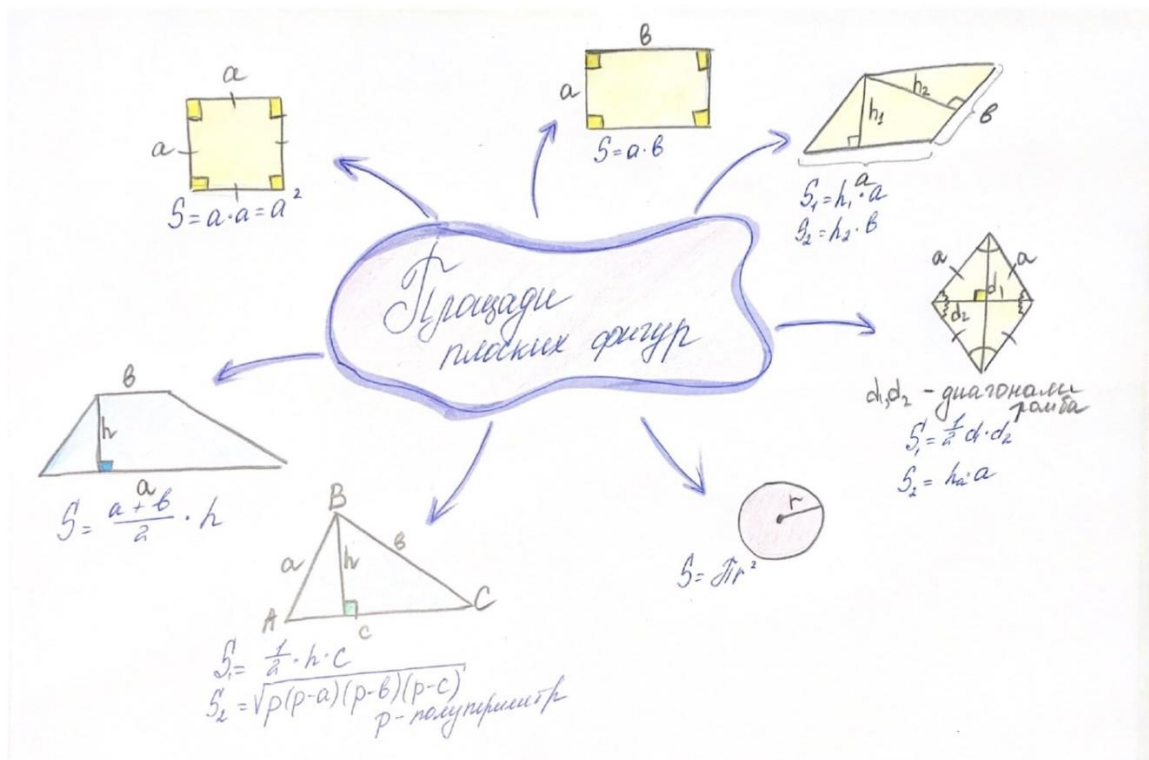 Площади
плоских фигур
a
a
S = a·a = a²
в
a
S = a·в
h₁
h₂
в
a
S₁ = h₁·a
S₂ = h₂·в
a
a
d₁
d₂
d₁,d₂ - диагонали
ромба
S₁ = 1/2 d₁·d₂
S₂ = hₐ·a
r
S = πr²
B
a
h
в
A
c
C
S₁ = 1/2·h·c
S₂ = √p(p-a)(p-в)(p-c)
p - полупериметр
в
h
a
S = a+в/2 · h